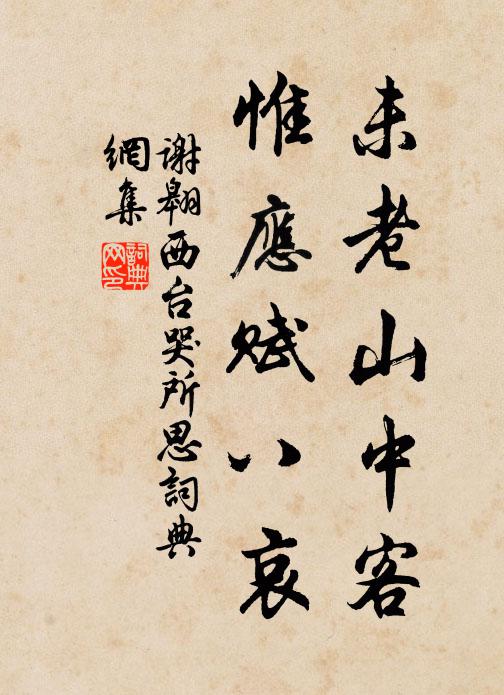 未老山中客
惟應賦八哀
謝翱西台哭所思詞典
網集
詞典
网印